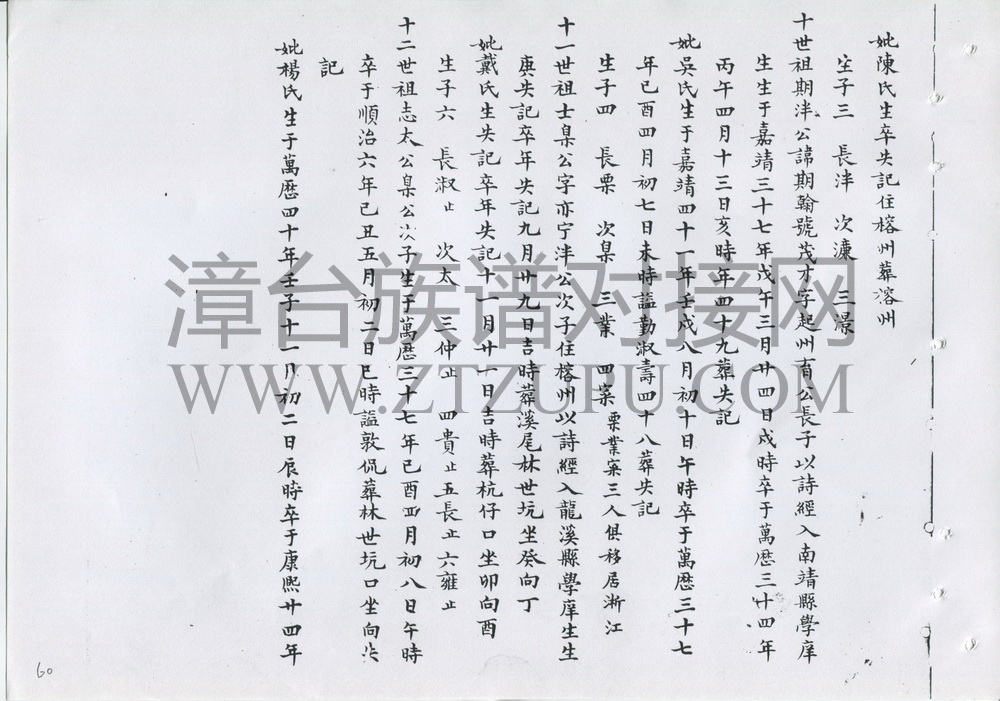 妣陳氏生卒失記住榕州葬溶州
生子三 長泮 次濂 三濴
十世祖期泮公諱期翰號茂才字起州百公長子以詩經入南靖縣學庠
生生于嘉靖三十七年戊午三月廿四日戌時卒于萬曆三十四年
丙午四月十三日亥時年四十九葬失記
妣吳氏生于嘉靖四十一年壬戌八月初十日午時卒于萬曆三十七
年己酉四月初七日未時謚勤淑壽四十八葬失記
生子四 長栗 次臬 三業 四案栗業案三人俱移居浙江
十一世祖士臬公字亦宁泮公次子住榕州以詩經入龍溪縣學庠生生
庚失記卒年失記九月廿九日吉時葬溪尾林世坑坐癸向丁
妣戴氏生失記卒年失記十一月廿一日吉時葬杭仔口坐卯向酉
生子六 長淑止 次太 三仲止 四貴止五長止六雍止
十二世祖志太公臬公次子生于萬曆三十七年己酉四月初八日午時
卒于順治六年己丑五月初二日巳時謚敦侃葬林世坑口坐向失
記
妣楊氏生于萬曆四十年壬子十一月初二日辰時卒于康熙廿四年
漳台族谱对接网
WWW.ZTZUPU.COM
60